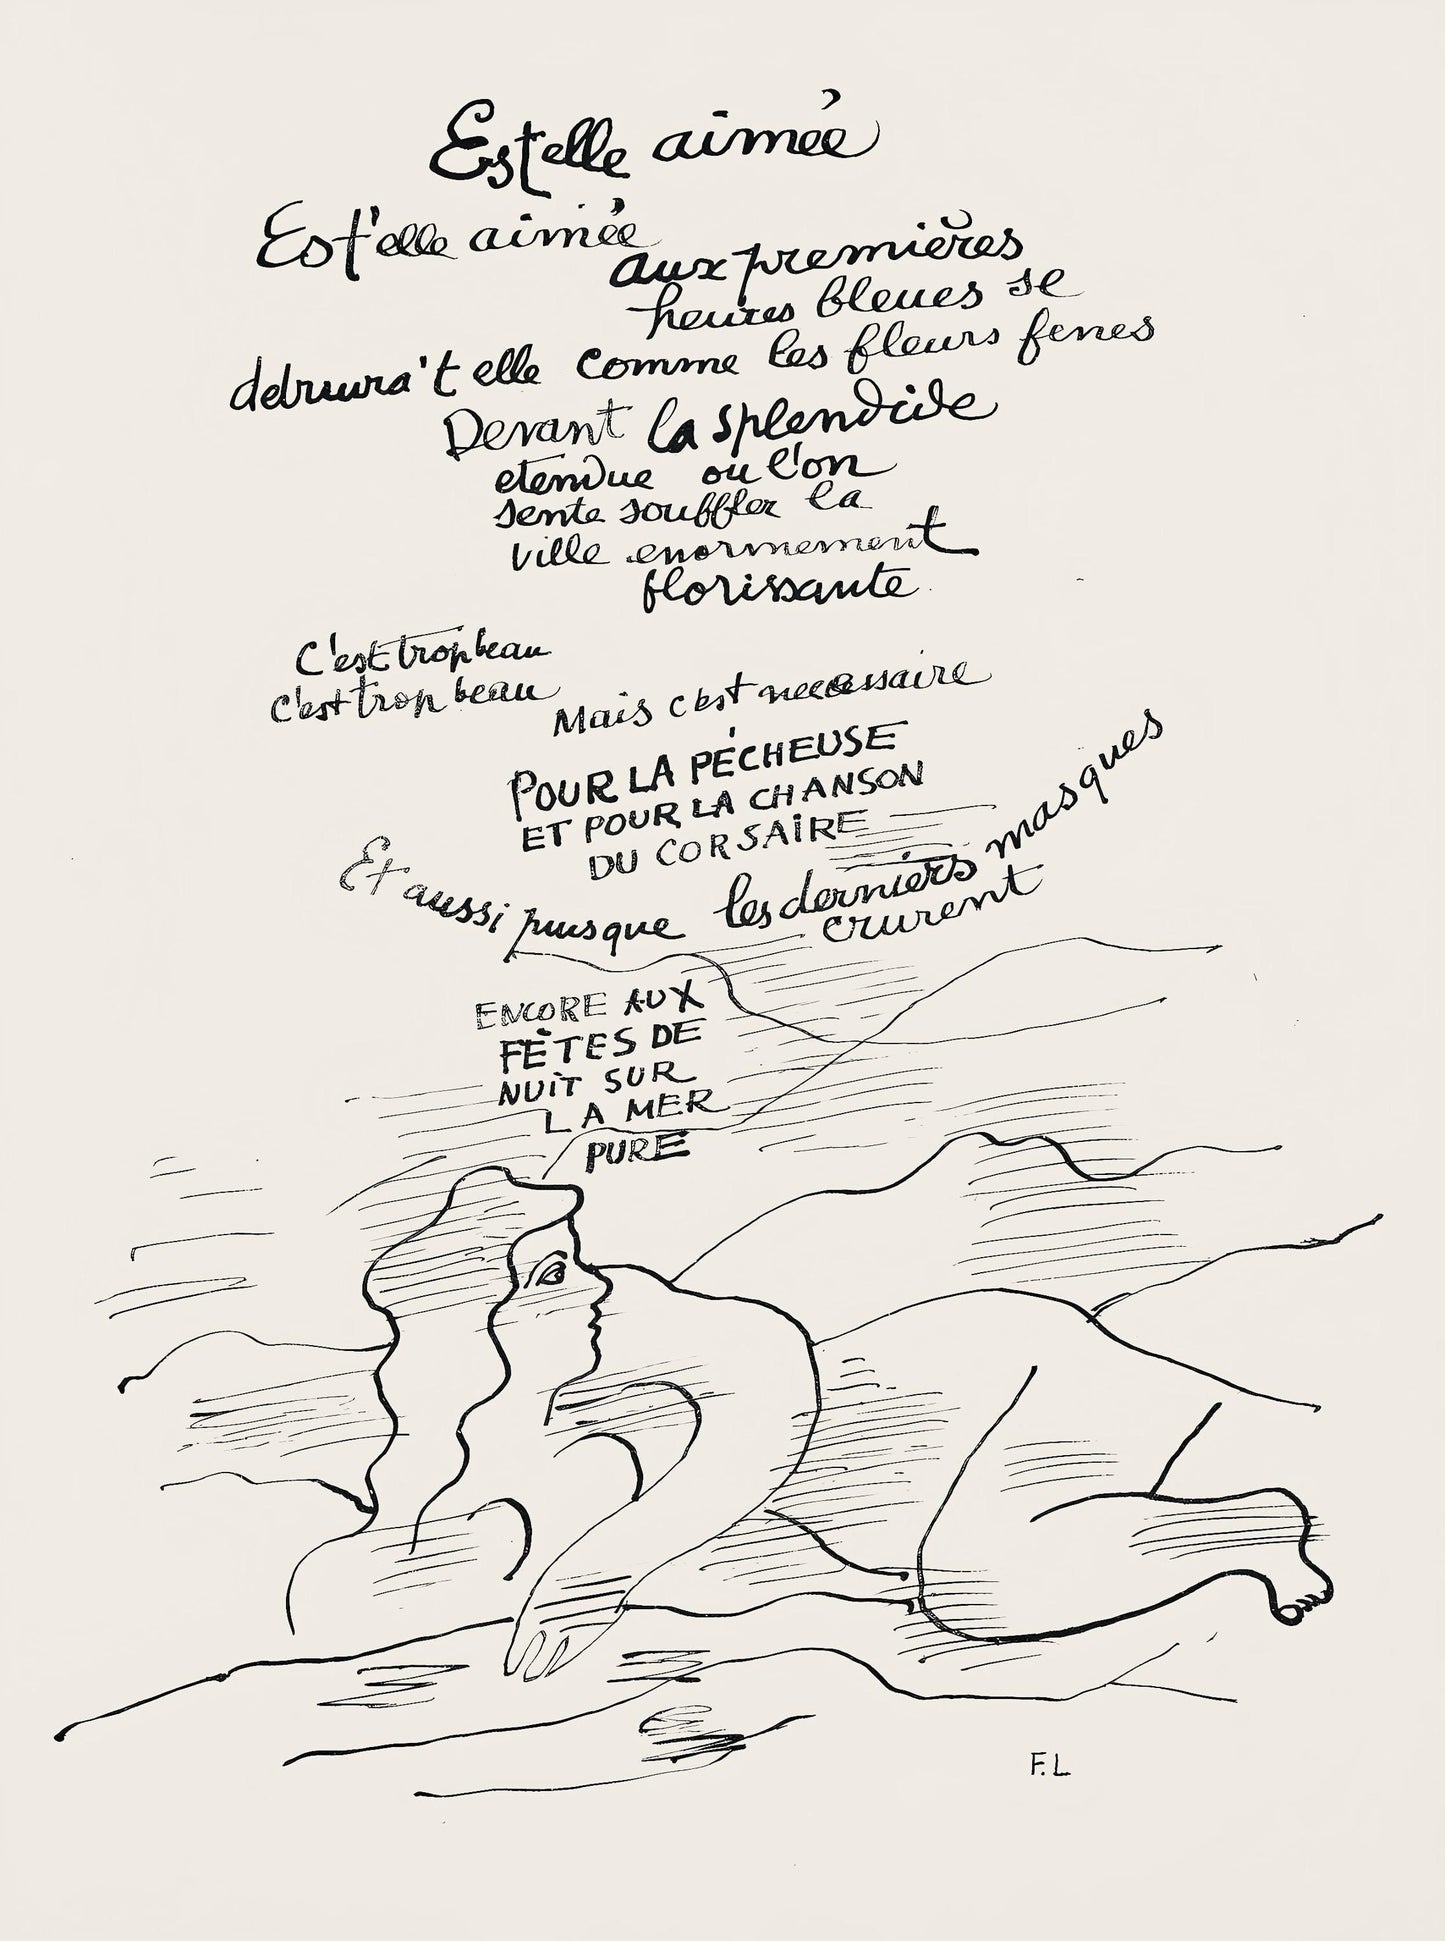 Est elle aimée
Est'elle aimée
aux premières
heures bleues se
detruira't elle comme les fleurs fenes
Devant la splendide
etendue ou l'on
sente souffler la
ville enormement
florissante
C'est trop beau
c'est trop beau
Mais c'est necessaire
POUR LA PÉCHEUSE
ET POUR LA CHANSON
DU CORSAIRE
Et aussi puisque les derniers masques
crurent
ENCORE AUX
FÊTES DE
NUIT SUR
LA MER
PURE
F.L